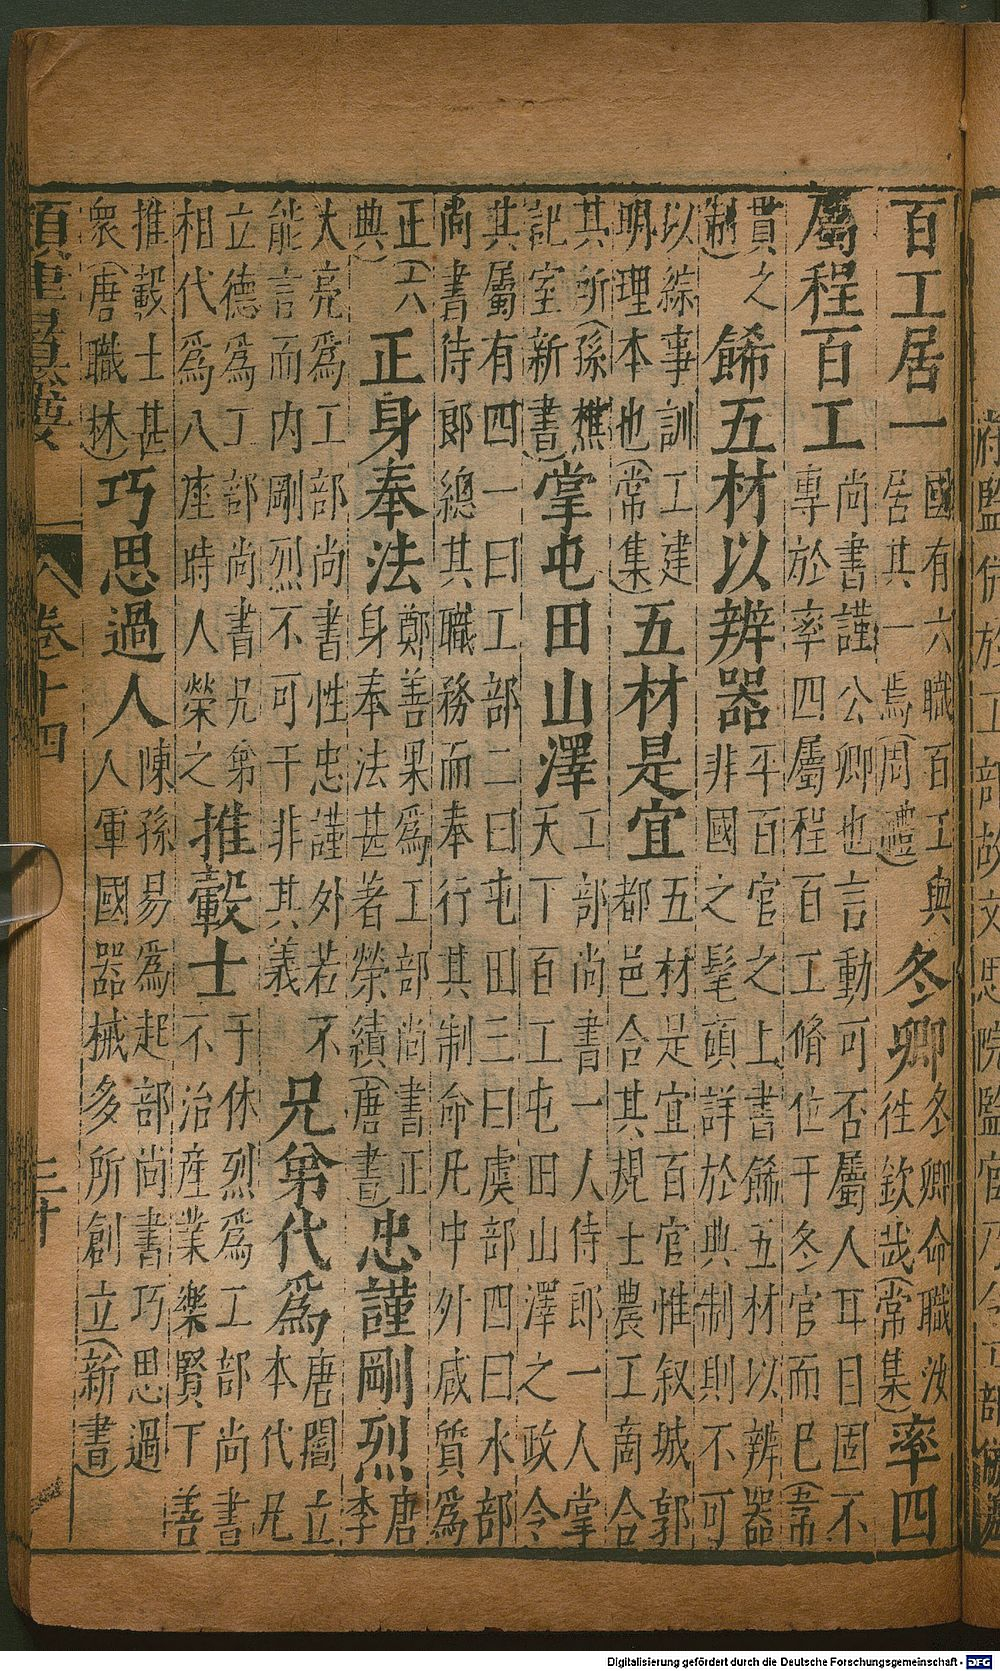 百工居一
國有六職百工與
居其一焉(周禮)
冬卿
冬卿命職汝
往欽哉(常集)
率四
屬程百工
尚書謹公卿也言動可否屬人耳目固不
專於率四屬程百工脩位于冬官而已(常
貫之
制)
餙五材以辨器
平百官之上書餙五材以辨器
非國之髦碩詳於典制則不可
以綜事訓工建
明理本也(常集)
五材是宜
五材是宜百官惟叙城郭
都邑合其規士農工商合
其所(孫樵
記室新書)
掌屯田山澤
工部尚書一人侍郎一人掌
天下百工屯田山澤之政令
其屬有四一曰工部二曰屯田三曰虞部四曰水部
尚書侍郎總其職務而奉行其制命凡中外咸質為
正(六
典)
正身奉法
鄭善果為工部尚書正
身奉法甚著榮績(唐書)
忠謹剛烈
唐
李
大亮為工部尚書性忠謹外若不
能言而内剛烈不可干非其義
兄弟代為
唐閻立
本代兄
立德為工部尚書兄弟
相代為八座時人榮之
推轂士
于休烈為工部尚書
不治産業樂賢下善
推轂士甚
衆(唐職林)
巧思過人
陳孫易為起部尚書巧思過
人軍國器械多所創立(新書)
卷十四
Digitalisierung gefördert durch die Deutsche Forschungsgemeinschaft - DFG